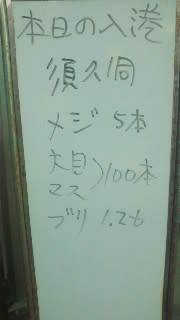 本日の入港
須久洞
メジ 5本
大目
マス )100本
ブリ 1.2t